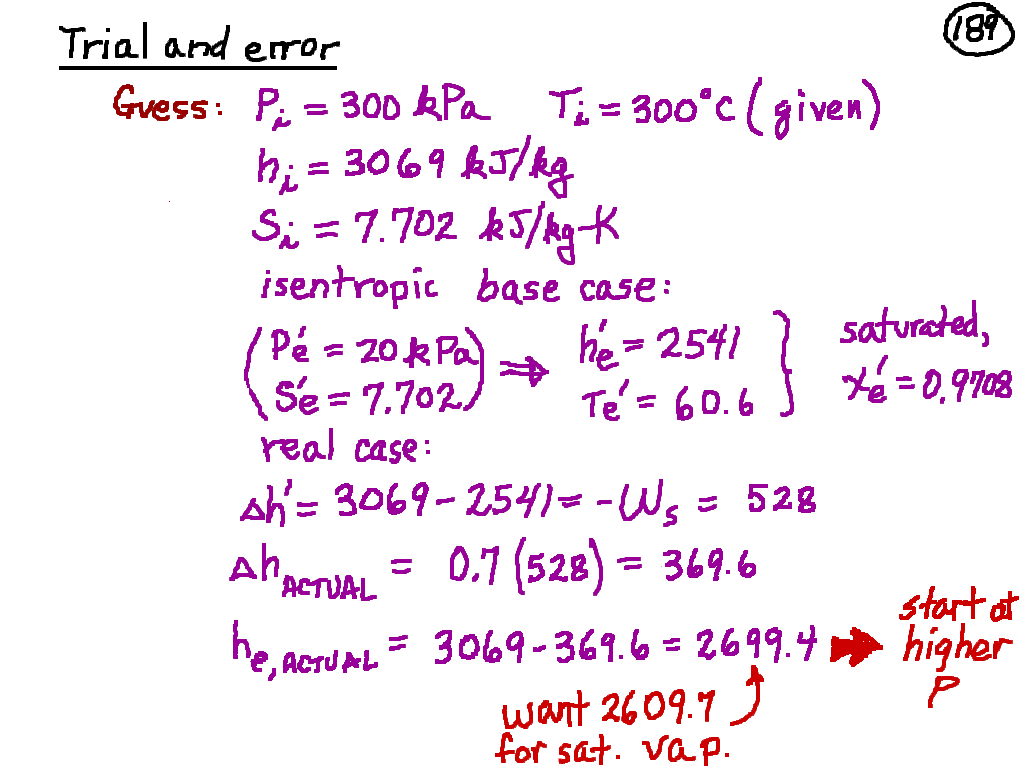 Trial and error
189
Guess: Pi = 300 kPa Ti = 300°C (given)
hi = 3069 kJ/kg
Si = 7.702 kJ/kg-K
isentropic base case:
(Pé = 20 kPa) ⇒ hé = 2541 } saturated,
(Sé = 7.702) Te' = 60.6 } xé = 0.9708
real case:
Δh' = 3069 - 2541 = -Ws = 528
Δh ACTUAL = 0.7 (528) = 369.6
he, ACTUAL = 3069 - 369.6 = 2699.4 ➡ start at
higher
P
want 2609.7
for sat. vap.